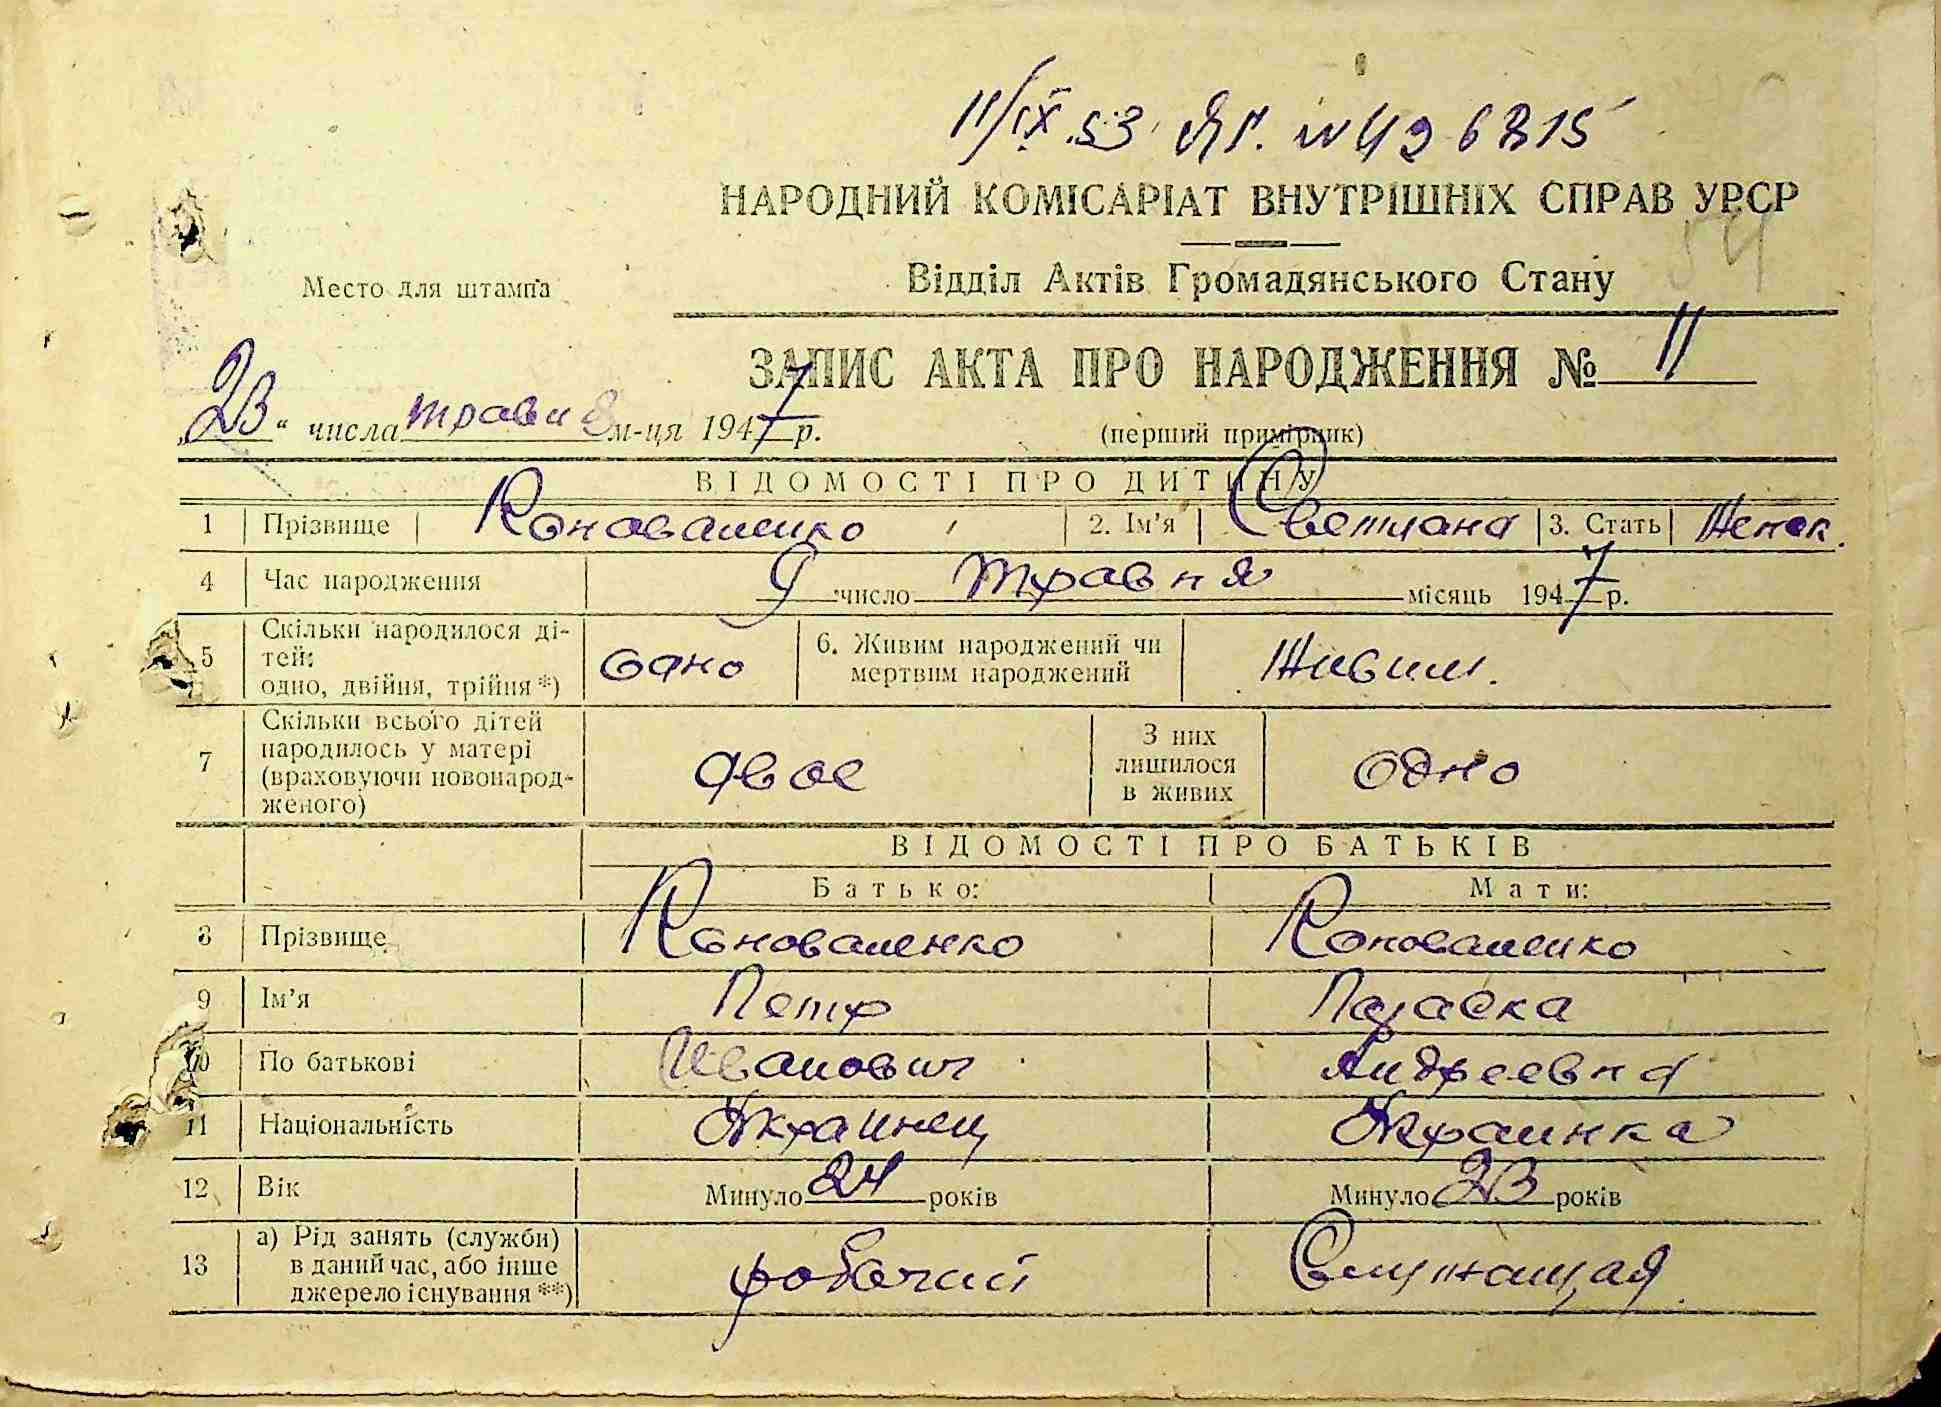 11/IX 53 ЯГ. № 426815
НАРОДНИЙ КОМІСАРІАТ ВНУТРІШНІХ СПРАВ УРСР
54
Место для штампа
Відділ Актів Громадянського Стану
ЗАПИС АКТА ПРО НАРОДЖЕННЯ № 11
„23“ числа травня м-ця 1947 р.
(перший примірник)
ВІДОМОСТІ ПРО ДИТИНУ
1 Прізвище Коноваленко 2. Ім’я Светлана 3. Стать Женск.
4 Час народження 9 число травня місяць 1947 р.
5 Скільки народилося ді-
тей:
одно, двійня, трійня *) одно 6. Живим народжений чи
мертвим народжений Живим.
7 Скільки всього дітей
народилось у матері
(враховуючи новонарод-
женого) двое З них
лишилося
в живих одно
ВІДОМОСТІ ПРО БАТЬКІВ
Батько: Мати:
8 Прізвище Коноваленко Коноваленко
9 Ім’я Петр Параска
10 По батькові Иванович Андреевна
11 Національність Украинец Украинка
12 Вік Минуло 24 років Минуло 23 років
13 а) Рід занять (служби)
в даний час, або інше
джерело існування **) рабочий Служащая.